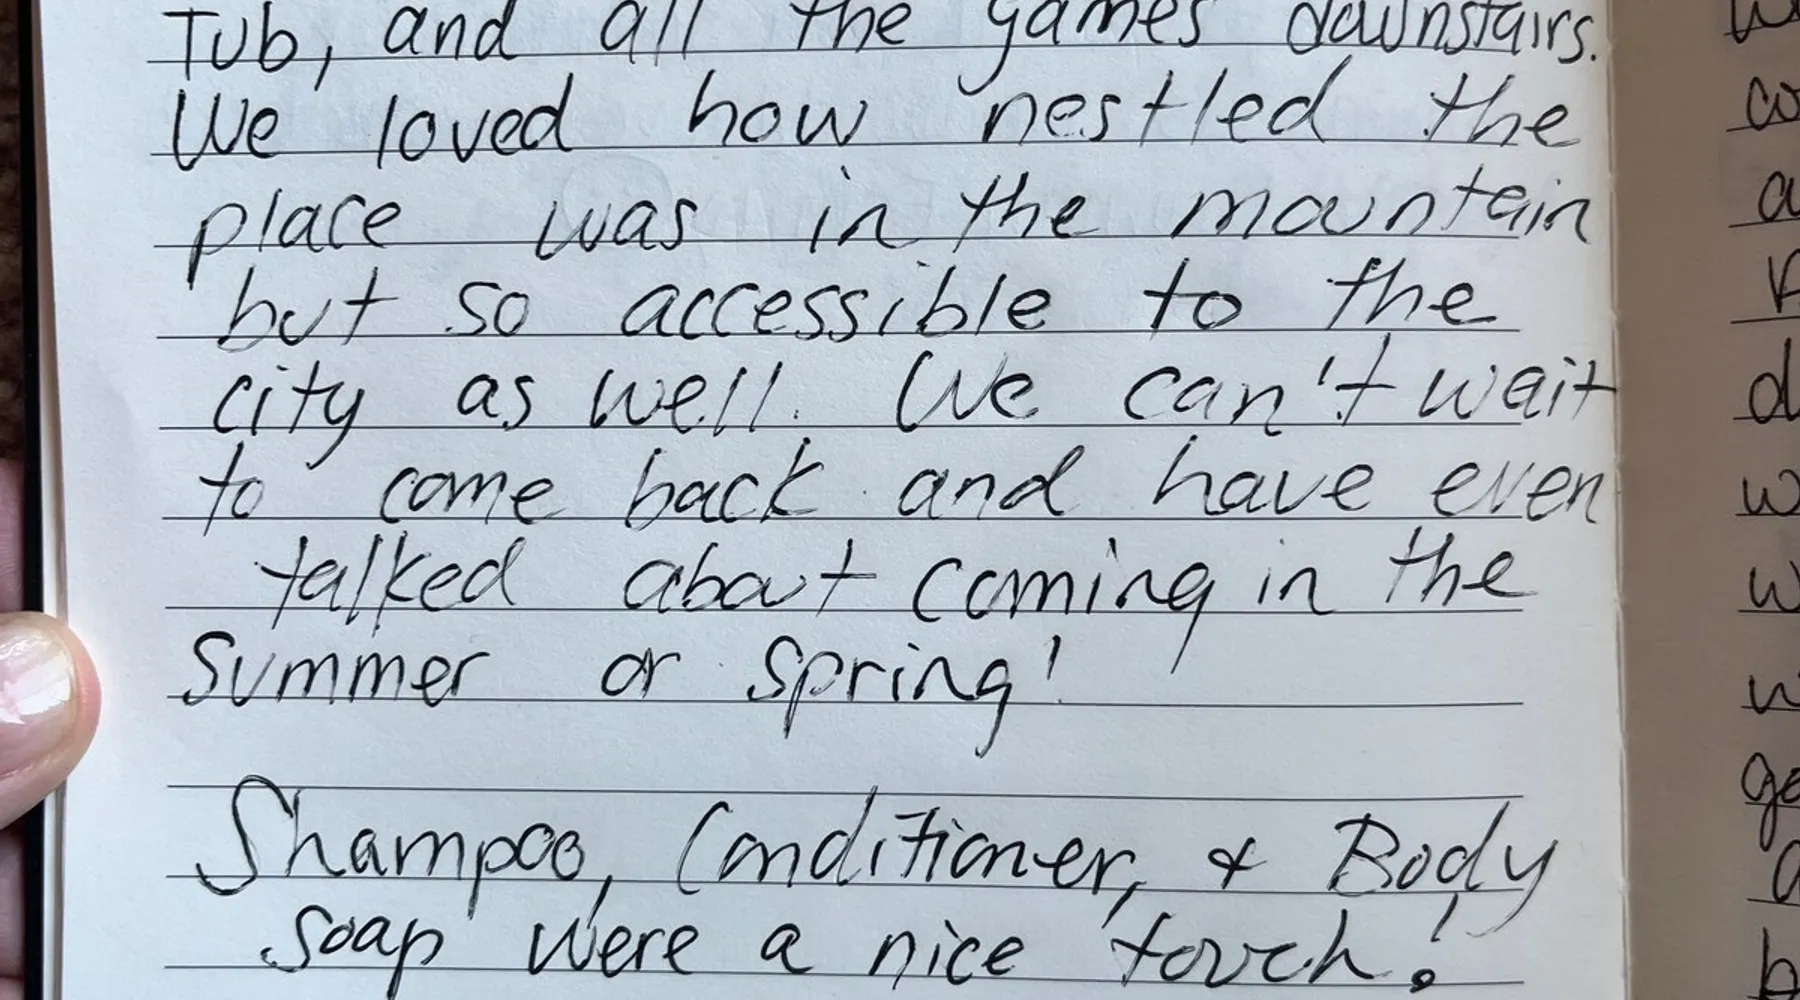 Tub, and all the games downstairs.
We loved how nestled the
place was in the mountain
but so accessible to the
city as well. We can't wait
to come back and have even
talked about coming in the
summer or spring!
Shampoo, Conditioner, & Body
soap were a nice touch!